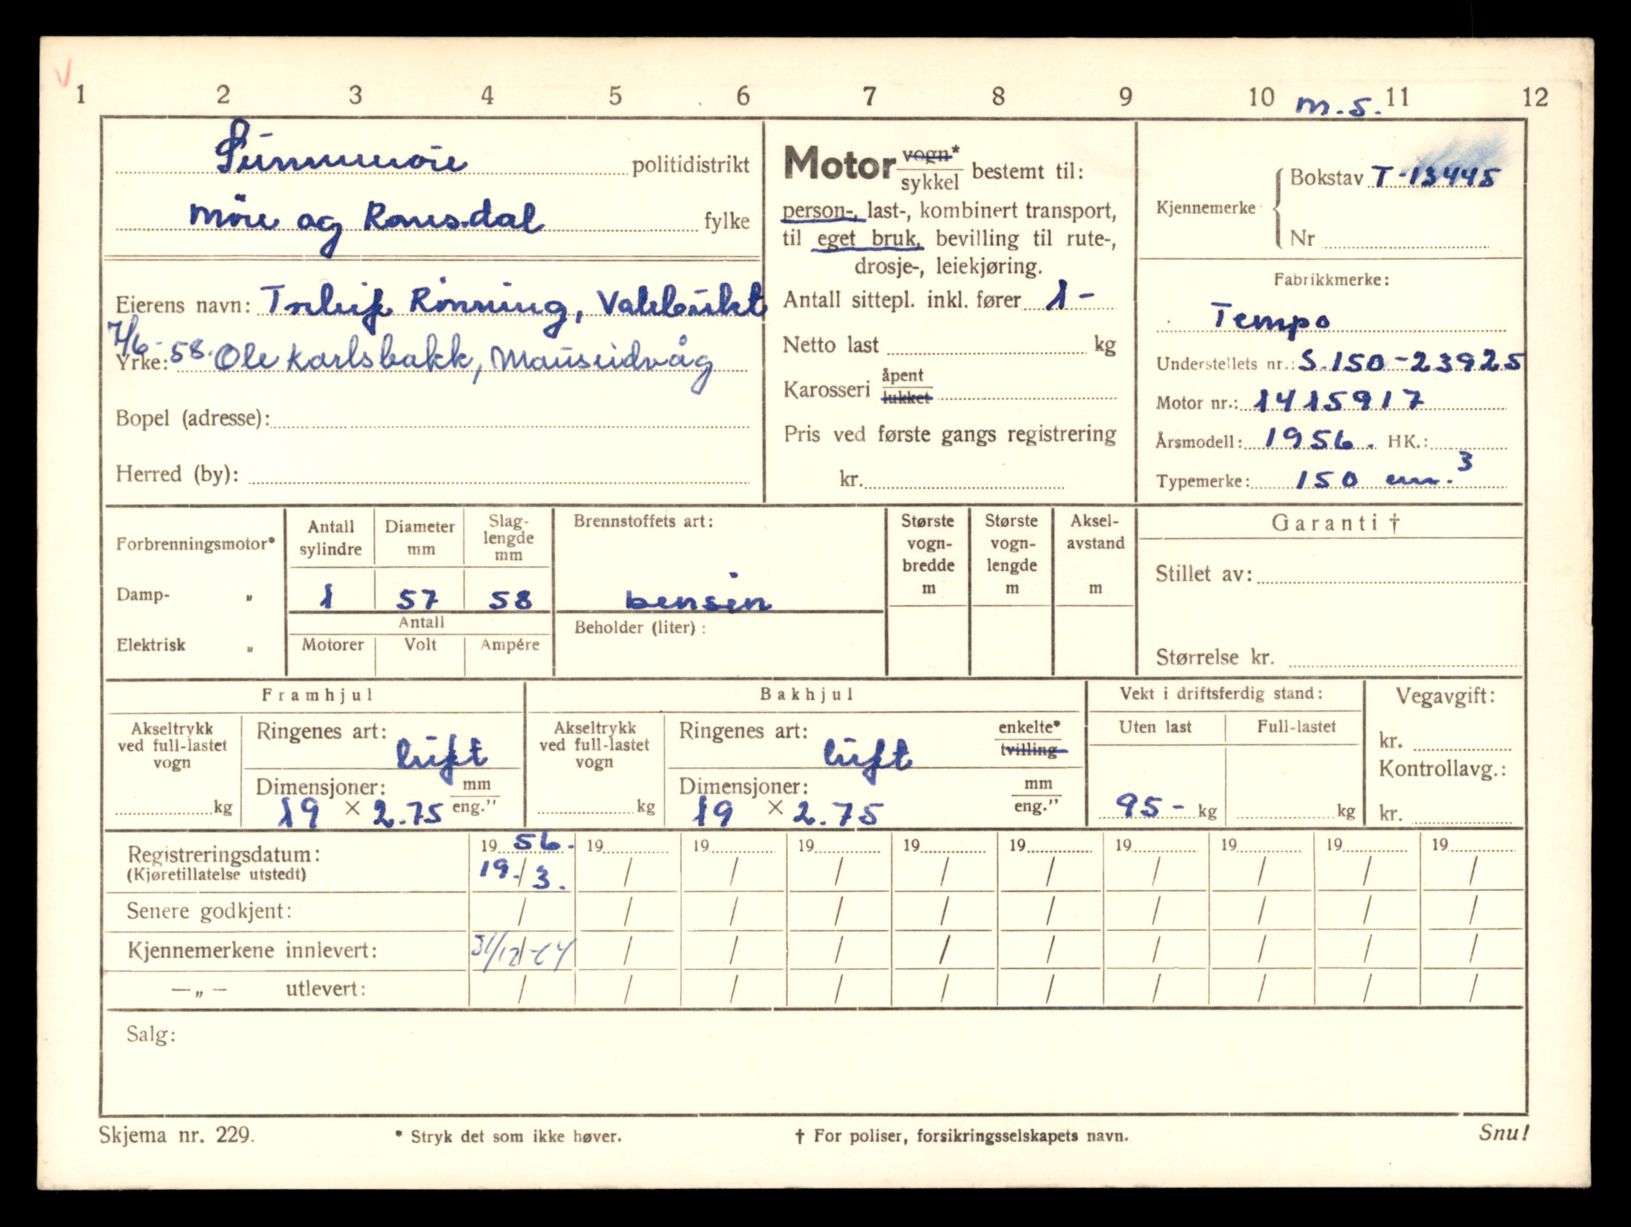 V
1 2 3 4 5 6 7 8 9 10 11 12
m.s.
Sunnmøre politidistrikt
Møre og Romsdal fylke
Eierens navn: Rønning,
7/6-58. Yrke: Ole Karlsbakk, Mauseidvåg
Bopel (adresse):
Herred (by):
Motor vogn* sykkel bestemt til:
person-, last-, kombinert transport,
til eget bruk, bevilling til rute-,
drosje-, leiekjøring.
Antall sittepl. inkl. fører 1-
Netto last kg
Karosseri åpent lukket
Pris ved første gangs registrering
kr.
Kjennemerke Bokstav T-13445
Nr
Fabrikkmerke:
Tempo
Understellets nr.: S.150-23925
Motor nr.: 1415917
Årsmodell: 1956. HK.:
Typemerke: 150 cm.3
Forbrenningsmotor*
Damp- "
Elektrisk "
Antall sylindre
1
Diameter mm
57
Slag-lengde mm
58
Antall
Motorer Volt Ampére
Brennstoffets art:
bensin
Beholder (liter):
Største vogn-bredde m
Største vogn-lengde m
Aksel-avstand m
Garanti †
Stillet av:
Størrelse kr.
Framhjul
Akseltrykk ved full-lastet vogn
kg
Ringenes art:
luft
Dimensjoner: mm eng."
19 × 2.75
Bakhjul
Akseltrykk ved full-lastet vogn
kg
Ringenes art: enkelte* tvilling
luft
Dimensjoner: mm eng."
19 × 2.75
Vekt i driftsferdig stand:
Uten last Full-lastet
95- kg kg
Vegavgift:
kr.
Kontrollavg.:
kr.
Registreringsdatum: 19 56. 19 19 19 19 19 19 19 19 19
(Kjøretillatelse utstedt) 19./3. / / / / / / / / /
Senere godkjent: / / / / / / / / / /
Kjennemerkene innlevert: 31/12-64 / / / / / / / / /
— „ — utlevert: / / / / / / / / / /
Salg:
Skjema nr. 229. * Stryk det som ikke høver. † For poliser, forsikringsselskapets navn. Snu!